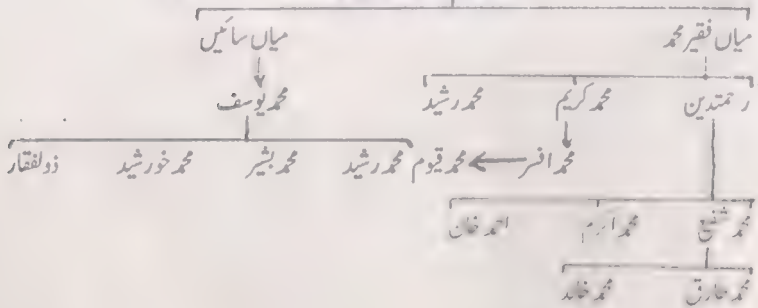 میاں فقیر محمد میاں سائیں
رحمتدین محمد کریم محمد رشید محمد یوسف
محمد افسر محمد قیوم محمد رشید محمد بشیر محمد خورشید ذولفقار
محمد شفیع محمد اکرم احمد خان
محمد طارق محمد خالد